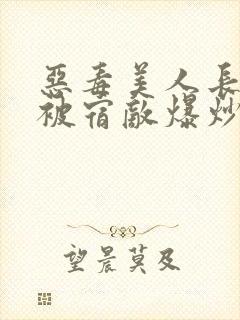 惡毒美人長
被宿敵爆炒
望晨莫及